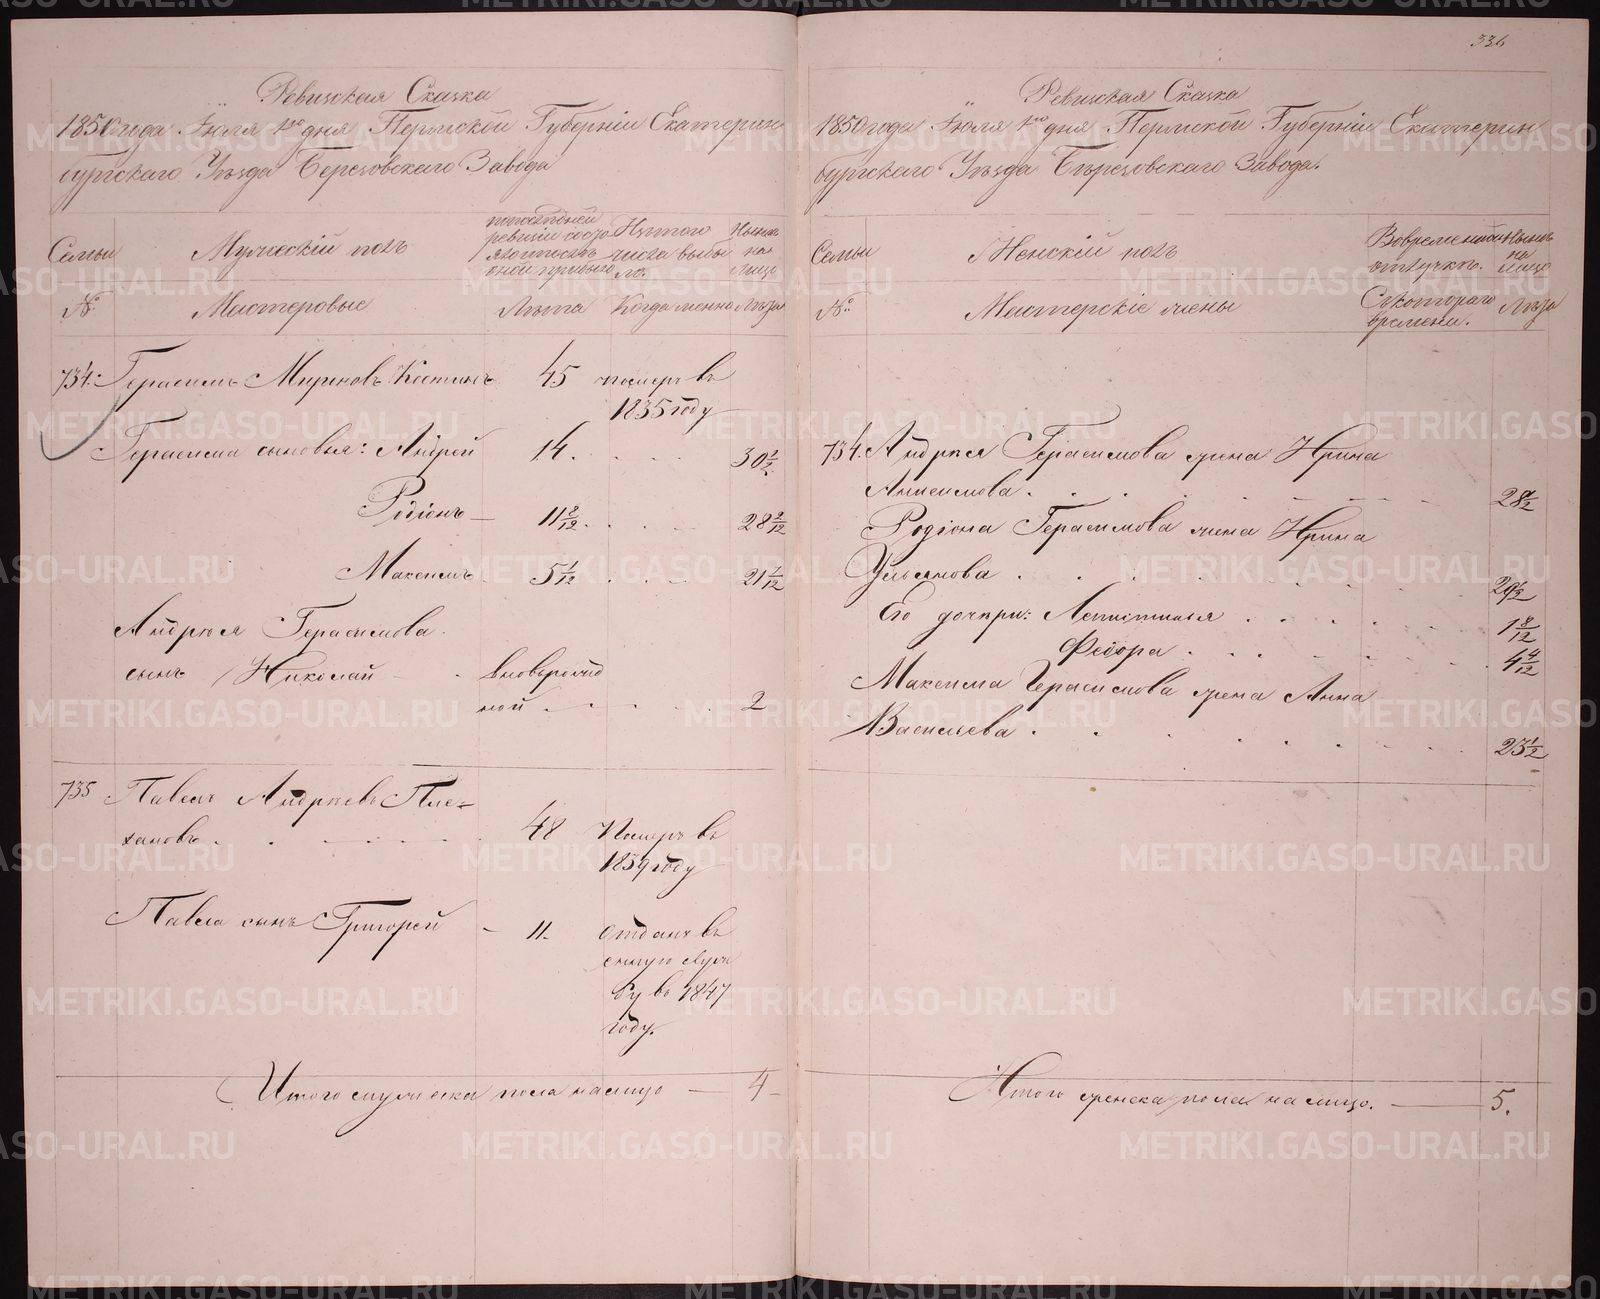 336
Ревизская Сказка
1850 года Іюля 1го дня Пермской Губерніи Екатерин
бургскаго Уѣзда Березовскаго Завода
Семьи
Мужескій полъ
по последней
ревизіи состо
яло и послѣ
оной прибыло
Изъ того
числа выбы
ло.
Нынѣ
на
лицо
№
Мастеровые
Лѣта
Когда именно
Лѣта
734. Герасимъ Мироновъ Костинъ 45 померъ въ
1835 году
Герасима сыновья: Андрей 14. 30 1/2
Родіонъ 11 2/12. 28 2/12
Максимъ 5 1/12 21 1/12
Андрея Герасимова
сынъ Николай вноверожд
ной 2
735 Павелъ Андреевъ Пле-
хановъ 48 Померъ въ
1839 году
Павла сынъ Григорей 11. отданъ въ
службу въ 1847
году.
Итого мужеска пола налицо 4
Ревизская Сказка
1850 года Іюля 1го дня Пермской Губерніи Екатерин
бургскаго Уѣзда Березовскаго Завода.
Семьи
Женскій полъ
Во временной
отлучкѣ.
Нынѣ
на
лицо
№
Мастерскіе жены
Съ котораго
времени.
Лѣта
734. Андрея Герасимова жена Ирина
Анисимова 28 1/2
Родіона Герасимова жена Ирина
Ульянова
Его дочери: 1 8/12
Федора 4 4/12
Максима Герасимова жена Анна
Васильева 23 1/2
Итого женска пола налицо. 5.
METRIKI.GASO-URAL.RU